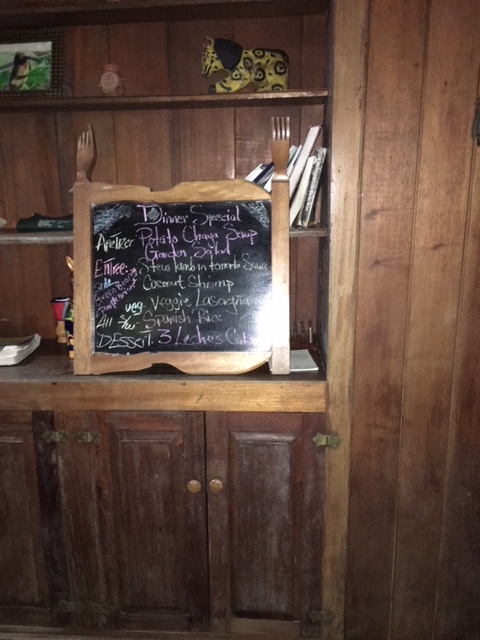 Dinner Special
Appetizer Potato Chaya Soup
Garden Salad
Entree: Stew lamb in tomato Sauce
Coconut Shrimp
veg. Veggie Lasagna
All s/w Spanish Rice
Dessert. 3 Leches Cake